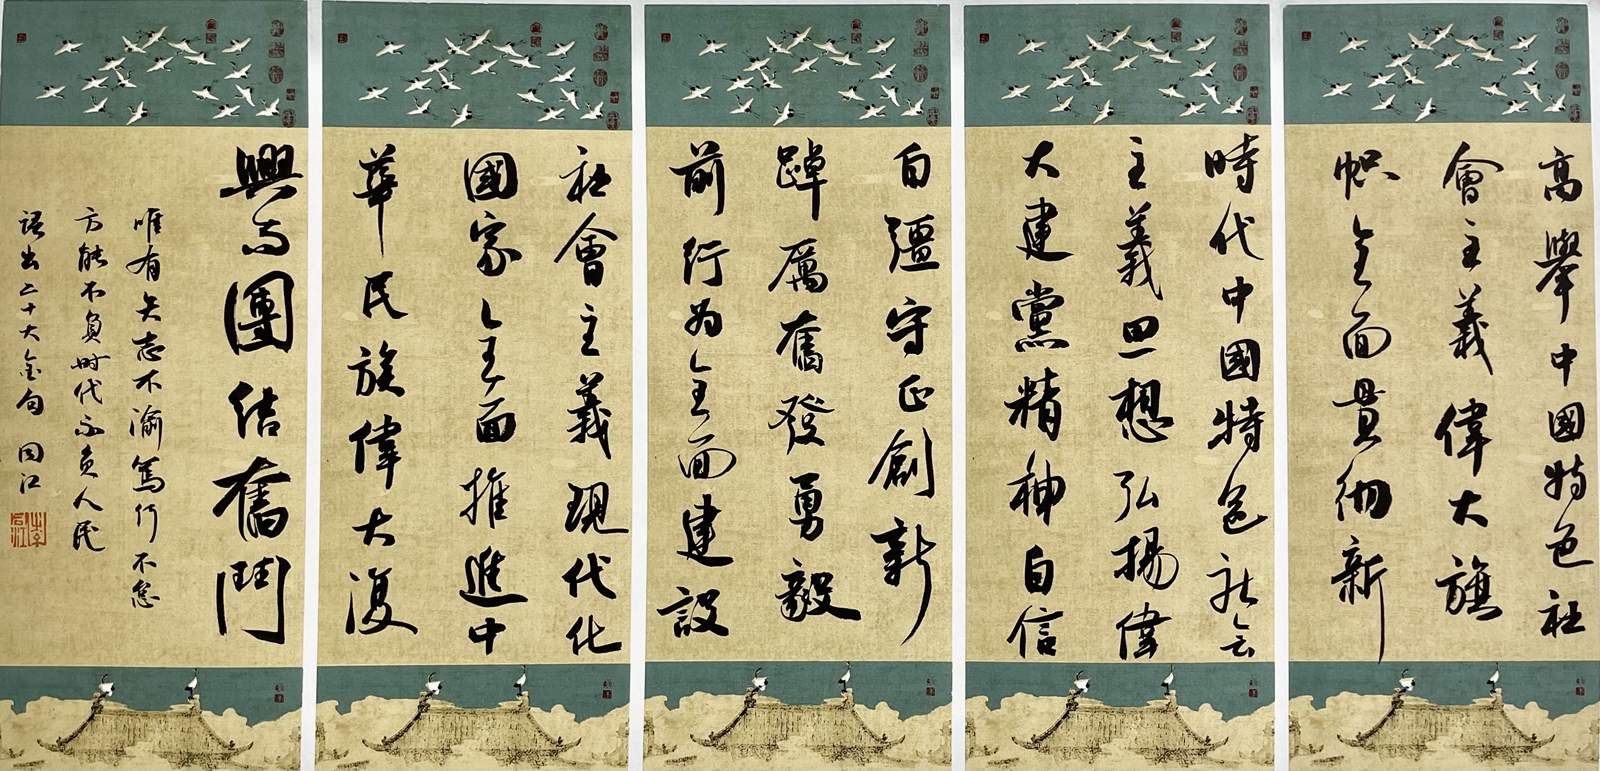 高舉中國特色社
會主義偉大旗
帜全面貫彻新
時代中國特色社会
主義思想弘揚偉
大建黨精神自信
自彊守正創新
踔厲奮發勇毅
前行为全面建設
社會主義現代化
國家全面推進中
華民族偉大復
興而團结奮鬥
唯有矢志不渝篤行不怠
方能不負时代不负人民
語出二十大金句 同江